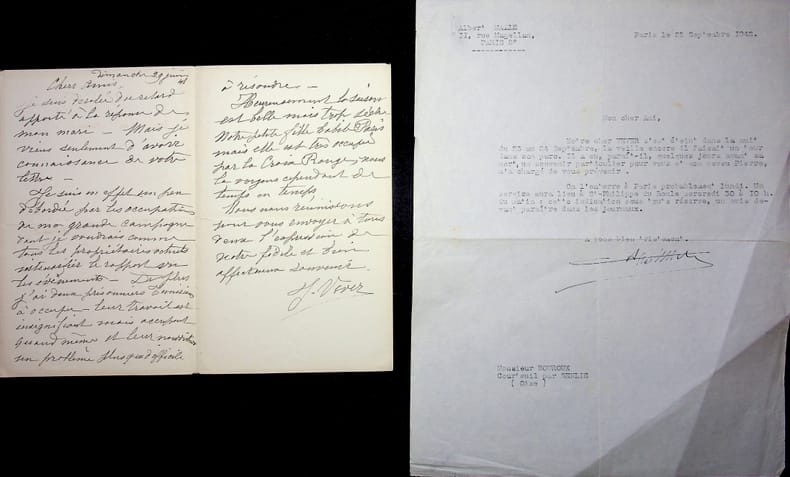 Dimanche 29 juin
41
Chers Amis,
Je suis désolée du retard
apporté à la réponse de
mon mari – Mais je
viens seulement d'avoir
connaissance de votre
lettre –
Je suis en effet un peu
débordée par les occupations
de ma grande campagne
dont je voudrais comme
tous les propriétaires
le rapport
les évènements – De plus
j'ai deux prisonniers
à occuper – leur travail est
insignifiant mais accepfont
quand même et leur
un problème plus difficile
à résoudre –
Heureusement la saison
est belle mais trop sèche
Notre petite fille Paris
mais elle est très occupée
par la Croix Rouge, nous
la voyons cependant de
temps en temps
Nous nous réunissons
pour vous envoyer à tous
deux l'expression de
notre fidèle et bien
affectueux souvenir
J. Vever
Albert
11, rue Magellan,
PARIS 8°
Paris le 25 Septembre 1942.
Mon cher Ami,
Notre cher VEVER s'est éteint dans la nuit
du 23 au 24 Septembre. La veille encore il faisait un tour
dans son parc. Il a eu, paraît-il, quelques jours avant sa
mort, un souvenir particulier pour vous et son neveu Pierre,
m'a chargé de vous prévenir.
On l'enterre à Paris probablement lundi. Un
service aura lieu à St Philippe du Roule mercredi 30 à 10 h.
du matin : cette indication sous toute réserve, un avis de-
vant paraître dans les journaux.
A vous bien tristement.
Monsieur BOUROUX
Courteuil par SENLIS
( Oise )